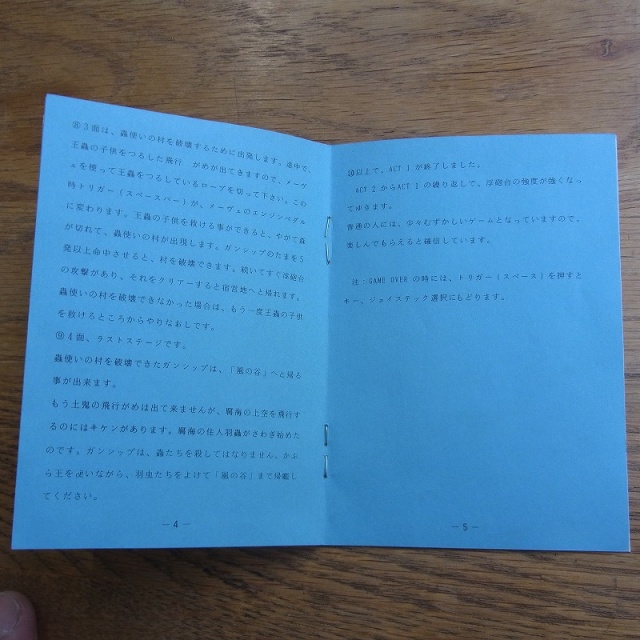 ⑧3面は、蟲使いの村を破壊するために出発します。途中で、
王蟲の子供をつるした飛行 がめが出てきますので、メーヴ
ェを使って王蟲をつるしているロープを切って下さい。この
時トリガー(スペースバー)が、メーヴェのエンジンペダル
に変わります。王蟲の子供を救ける事ができると、やがて森
が切れて、蟲使いの村が出現します。ガンシップのたまを5
発以上命中させると、村を破壊できます。続いてすぐ浮砲台
の攻撃があり、それをクリアーすると宿営地へと帰れます。
蟲使いの村を破壊できなかった場合は、もう一度王蟲の子供
を救けるところからやりなおしです。
⑨4面、ラストステージです。
蟲使いの村を破壊できたガンシップは、「風の谷」へと帰る
事が出来ます。
もう土鬼の飛行がめは出て来ませんが、腐海の上空を飛行す
るのにはキケンがあります。腐海の住人羽蟲がさわぎ始めた
のです。ガンシップは、蟲たちを殺してはなりません。かぶ
ら玉を使いながら、羽虫たちをよけて「風の谷」まで帰艦し
てください。
― 4 ―
⑩以上で、ACT 1 が終了しました。
ACT 2 からACT 1 の繰り返しで、浮砲台の強度が強くなっ
てゆきます。
普通の人には、少々むずかしいゲームとなっていますので、
楽しんでもらえると確信しています。
注:GAME OVER の時には、トリガー(スペース)を押すと
キー、ジョイステック選択にもどります。
― 5 ―